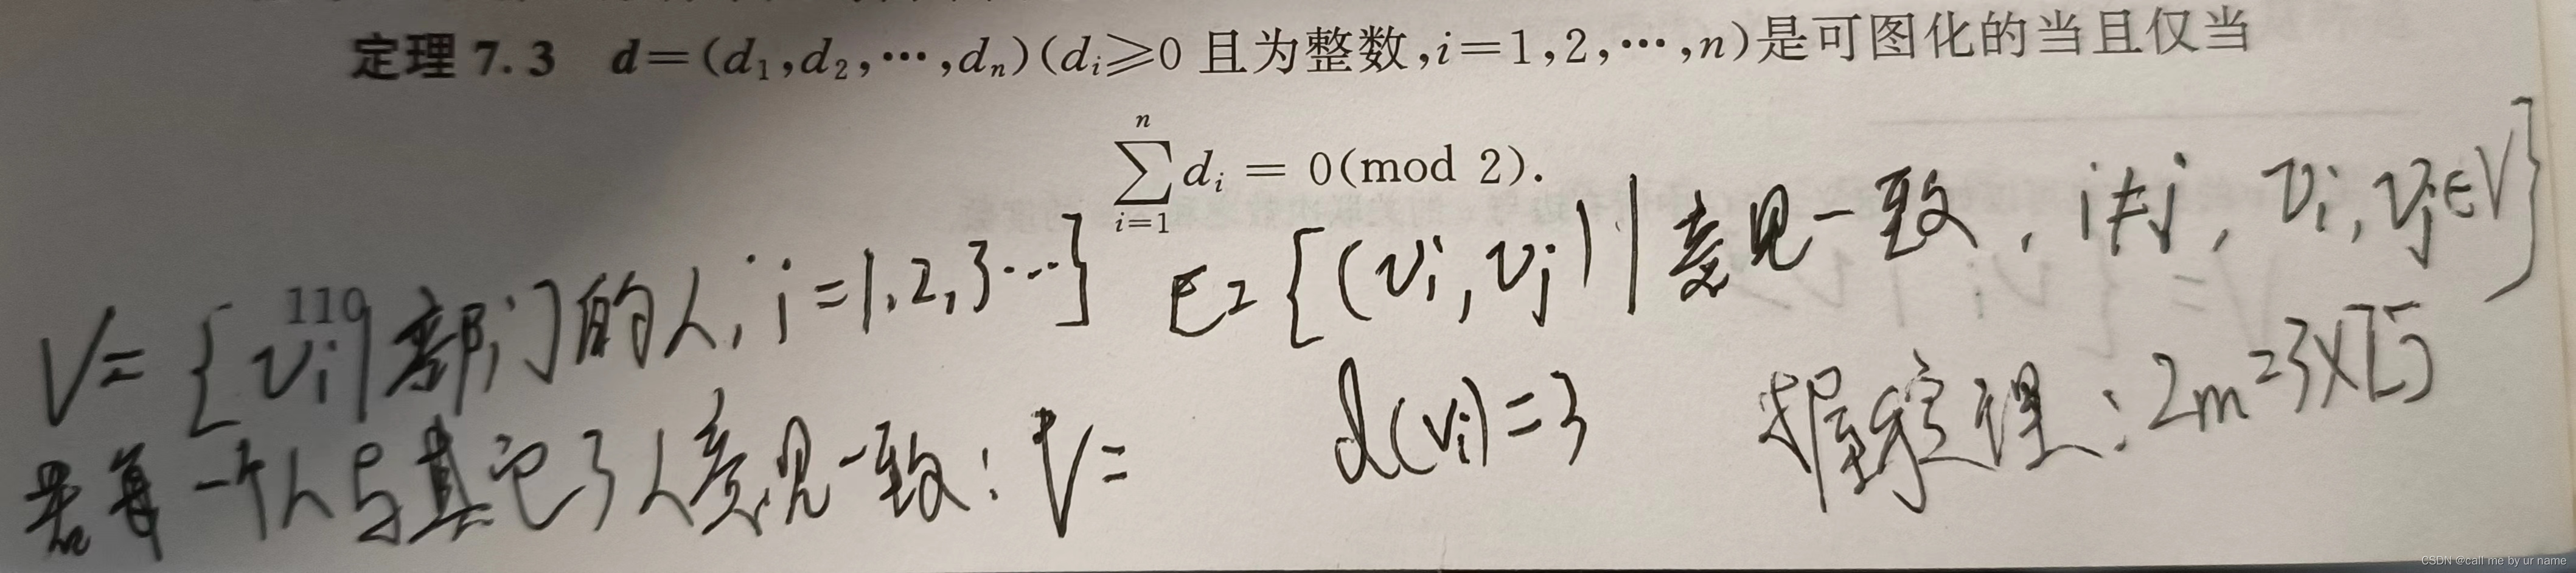 定理 7.3 d=(d₁,d₂,⋯,dₙ)(dᵢ⩾0 且为整数,i=1,2,⋯,n)是可图化的当且仅当
n
∑ dᵢ = 0(mod 2).
i=1
V={vᵢ|部门的人,i=1,2,3⋯} E={(vᵢ,vⱼ)|意见一致,i≠j,vᵢ,vⱼ∈V}
110
若每一个人与其它3人意见一致:V= d(vᵢ)=3 握手定理:2m=3×15
CSDN @call me by ur name